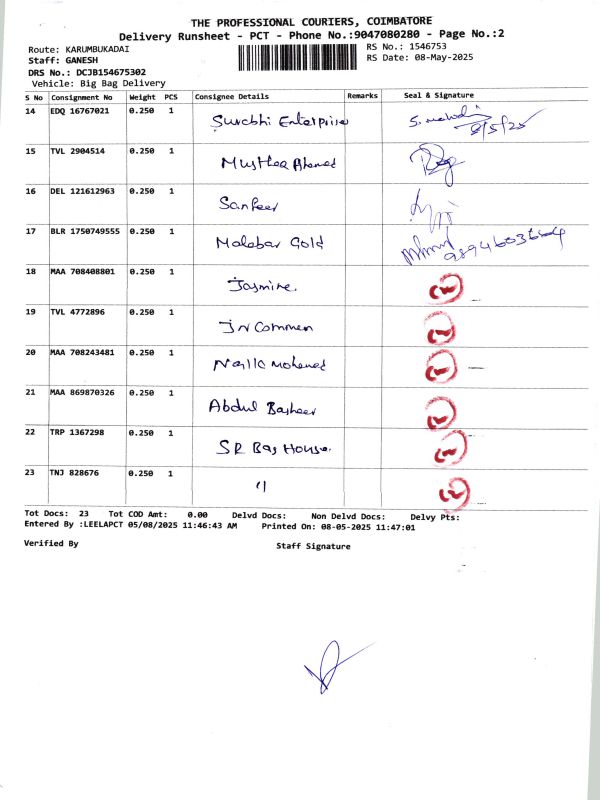 THE PROFESSIONAL COURIERS, COIMBATORE
Delivery Runsheet - PCT - Phone No.:9047080280 - Page No.:2
Route: KARUMBUKADAI
RS No.: 1546753
Staff: GANESH
RS Date: 08-May-2025
DRS No.: DCJB154675302
Vehicle: Big Bag Delivery
S No Consignment No Weight PCS Consignee Details Remarks Seal & Signature
14 EDQ 16767021 0.250 1 Surabhi Enterprise 8/5/25
15 TVL 2904514 0.250 1 Musthaq Ahamed
16 DEL 121612963 0.250 1 Sanfeer
17 BLR 1750749555 0.250 1 Malabar Gold 9894603664
18 MAA 708408801 0.250 1 Jasmine.
19 TVL 4772896 0.250 1
20 MAA 708243481 0.250 1 Mohamed
21 MAA 869870326 0.250 1 Abdul Basheer
22 TRP 1367298 0.250 1 SR Bag House.
23 TNJ 828676 0.250 1 "
Tot Docs: 23 Tot COD Amt: 0.00 Delvd Docs: Non Delvd Docs: Delvy Pts:
Entered By :LEELAPCT 05/08/2025 11:46:43 AM Printed On: 08-05-2025 11:47:01
Verified By Staff Signature